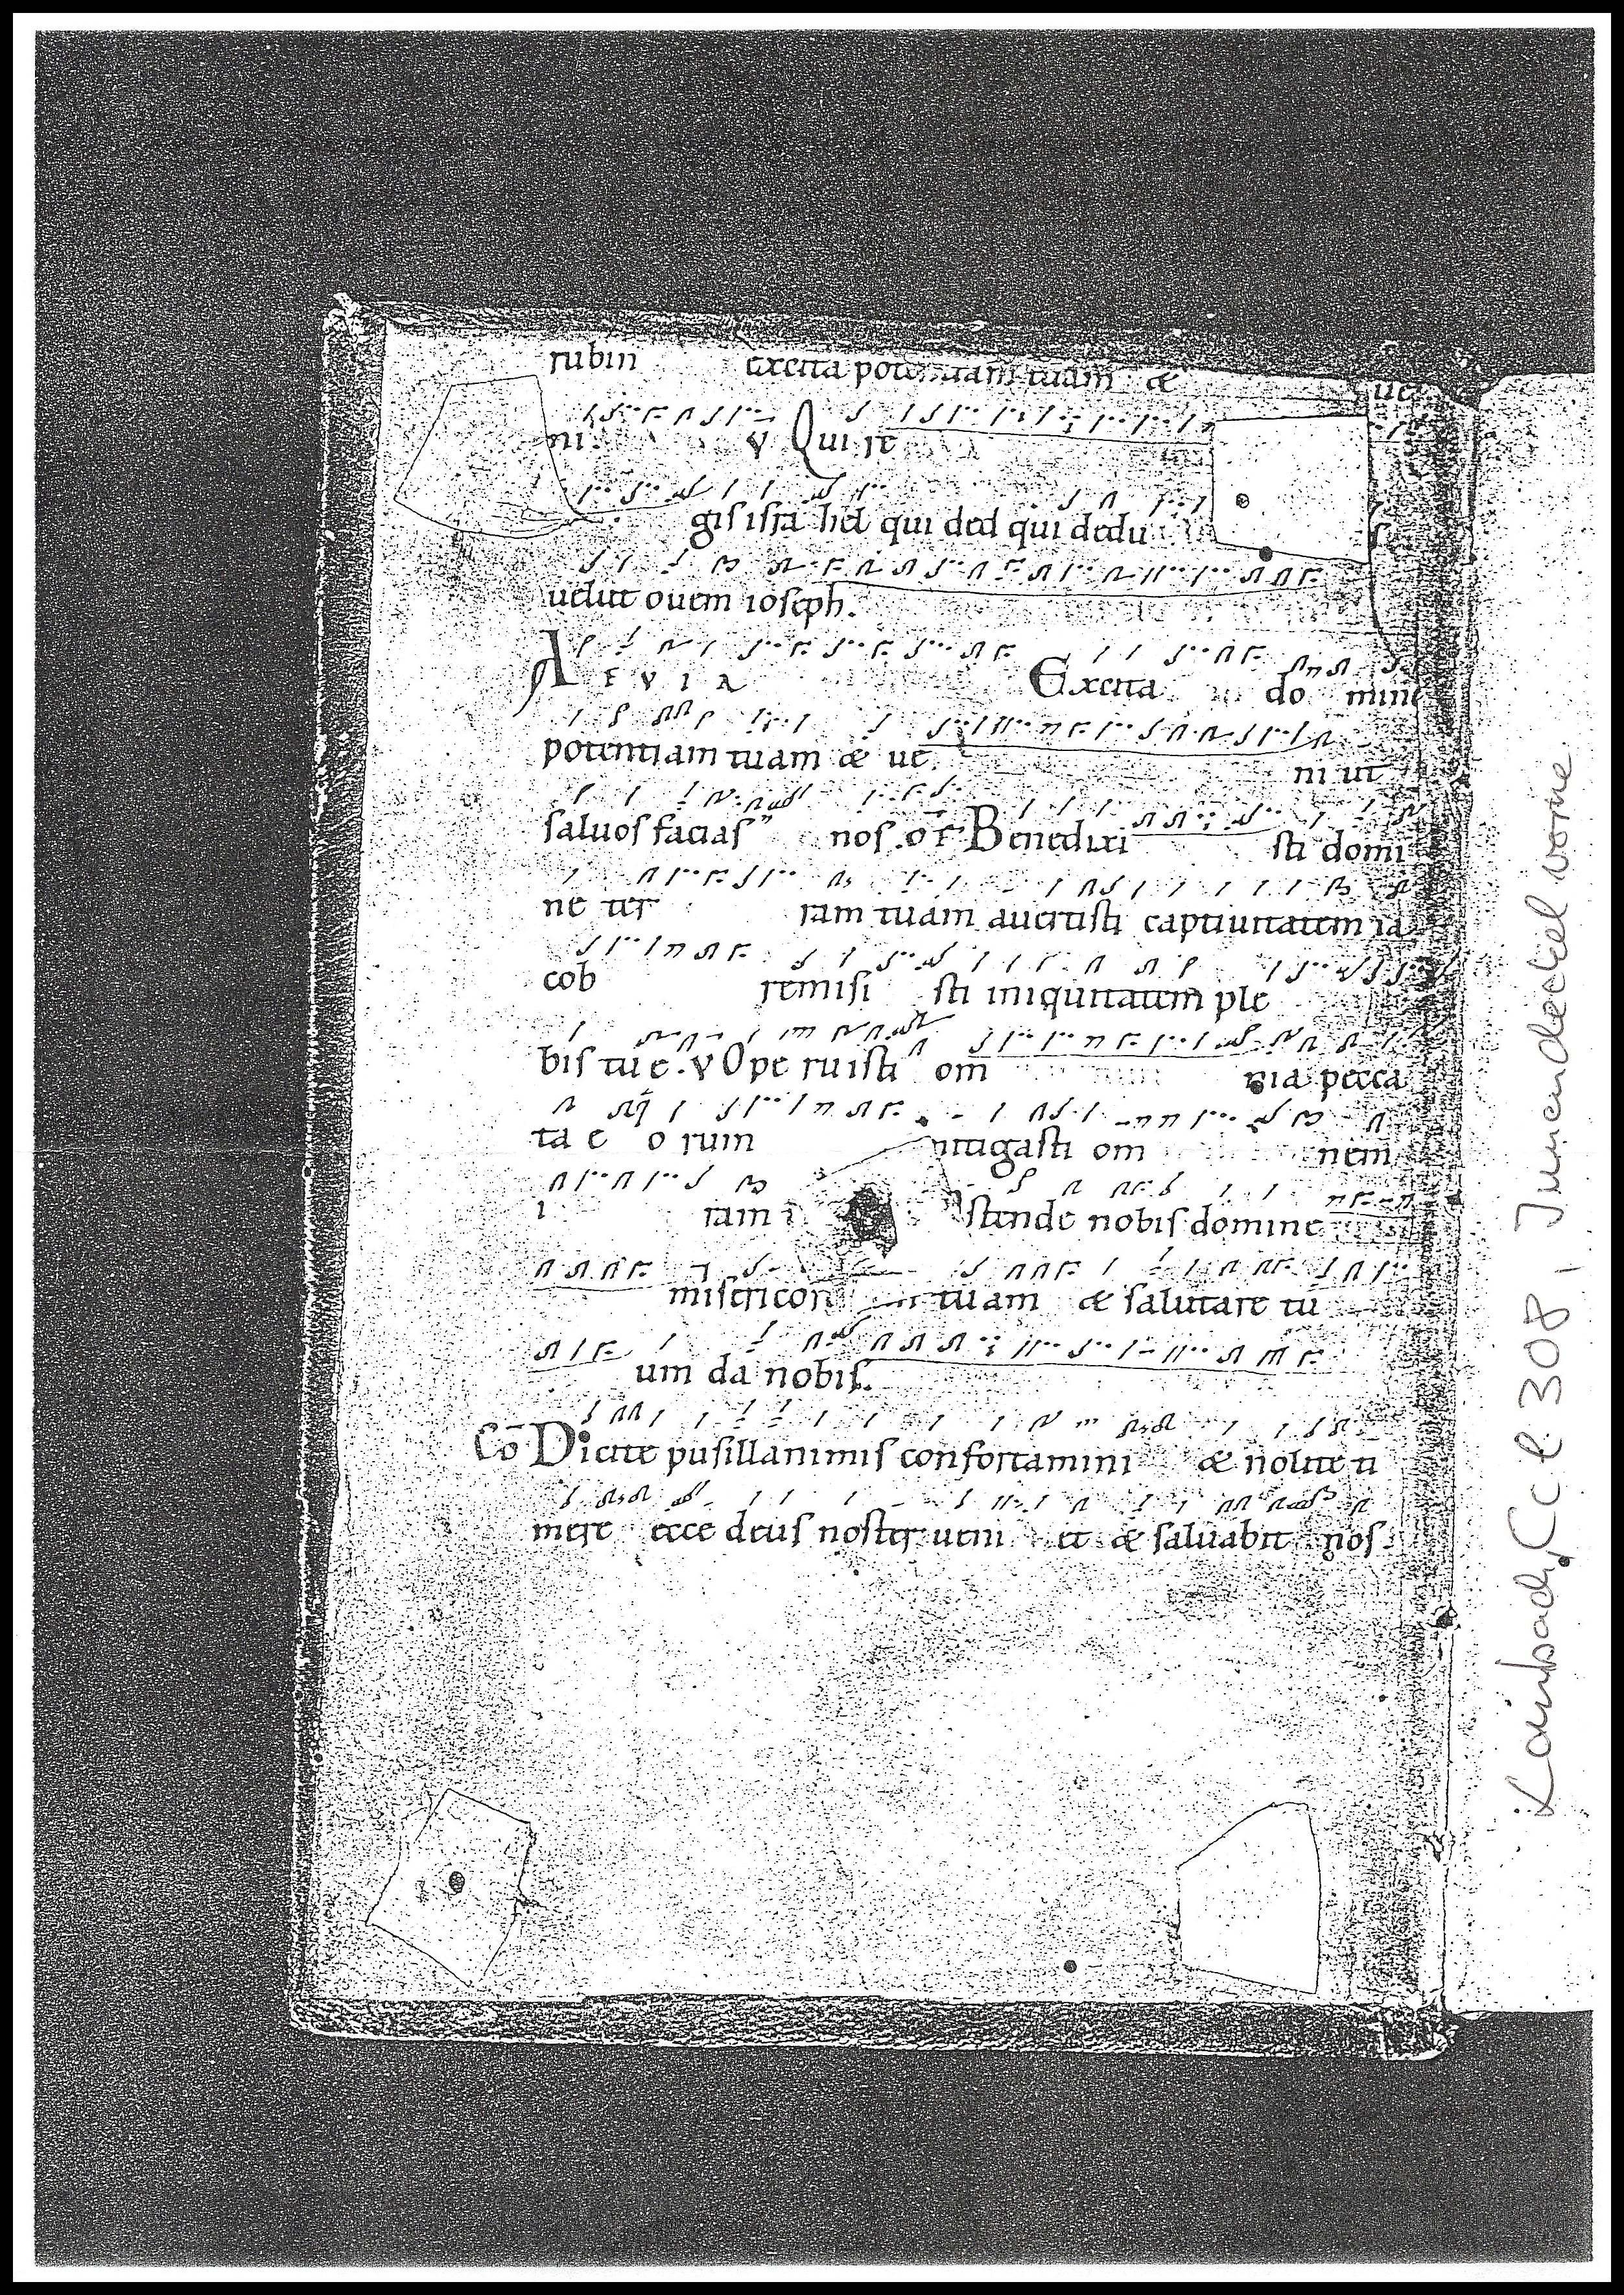 rubin excita potentiam tuam & ue
ni. v Qui re
gis isra hel qui ded qui dedu s
uelut ouem ioseph.
A E V I A Excita do mine
potentiam tuam & ue ni ut
saluos facias nos. of Benedixi sti domi
ne ter ram tuam auertisti captiuitatem ia
cob remisi sti iniquitatem ple
bis tu e. v Ope ruisti om nia pecca
ta e o rum mitigasti om nem
i ram stende nobis domine
misericor tuam & salutare tu
um da nobis.
Cō Dicite pusillanimis confortamini & nolite ti
mere ecce deus noster ueni et & saluabit nos.
Lambach, Ccl 308, Innendeckel vorne